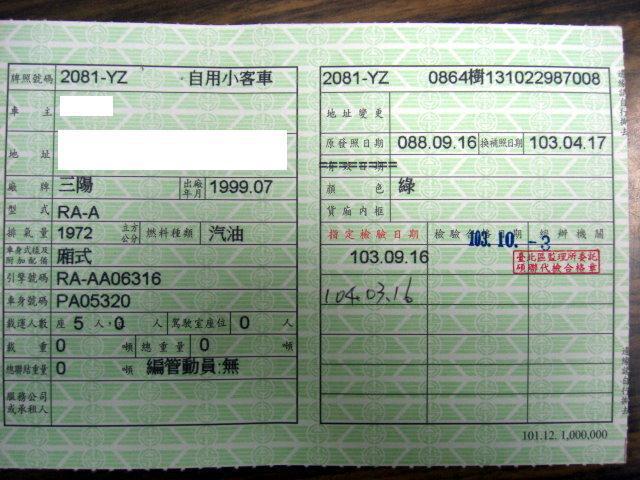 牌照號碼 2081-YZ 自用小客車
車主
地址
廠牌 三陽 出廠年月 1999.07
型式 RA-A
排氣量 1972 立方公分 燃料種類 汽油
車身式樣及附加配備 廂式
引擎號碼 RA-AA06316
車身號碼 PA05320
載運人數 座 5 人,0 人 駕駛室座位 0 人
載重 0 噸 總重量 0 噸
總聯結重量 0 噸 編管動員:無
服務公司或承租人
2081-YZ 0864樹131022987008
地址變更
原發照日期 088.09.16 換補照日期 103.04.17
有效日期
顏色 綠
貨廂內框
指定檢驗日期 檢驗合格日期 經辦機關
103.09.16 103.10.-3 臺北區監理所委託
碩聯代檢合格章
104.03.16
101.12. 1,000,000